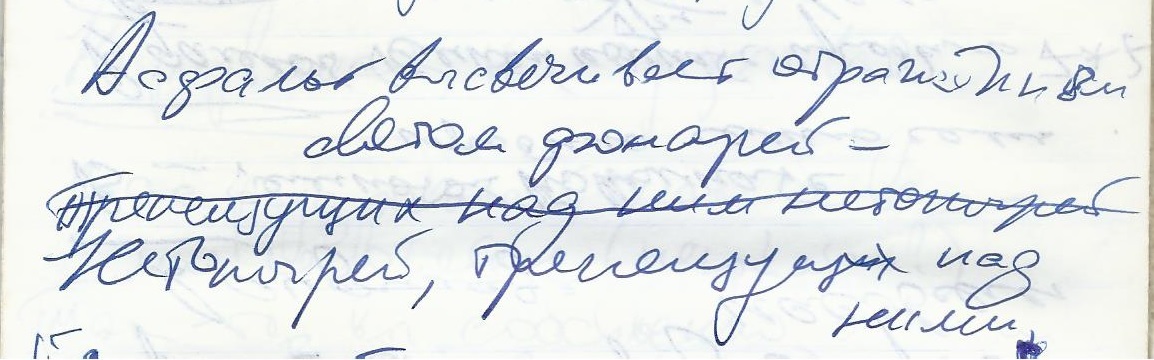 Асфальт высвечивает отражённым
светом фонарей –
Трепещущих над ним нетопырей
Нетопырей, трепещущих над
ними.